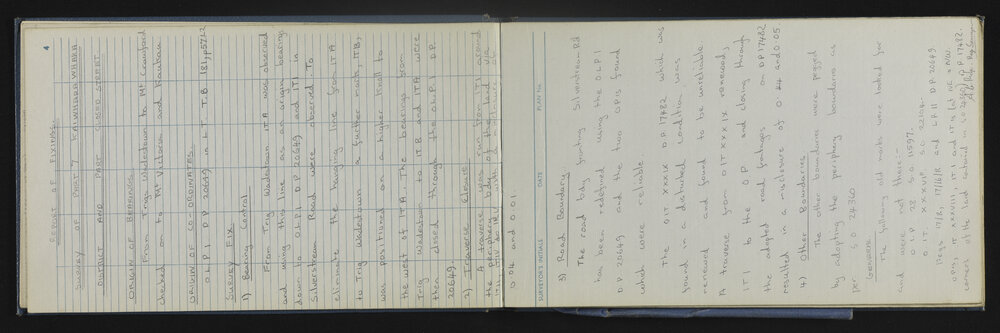 4
REPORT OF FIXING.
SURVEY OF PART 7 KAIWHARAWHARA
DISTRICT AND PART CLOSED STREET
ORIGIN OF BEARINGS
From Trigs Wadestown to Mt Crawford
checked on to Mt Victoria and Kaukau
ORIGIN OF CO-ORDINATES
O.L.P.I D.P. 20649 in L.T. T.B. 181, p57L2
SURVEY FIX
1) Bearing Control
From Trig Wadestown ITA was observed
and using this line as an origin bearings
down to OLPI DP 20649 and IT1 in
Silverstream Road were observed. To
eliminate the hanging line from ITA
to Trig Wadestown a further mark, ITB,
was positioned on a higher knoll to
the west of ITA. The bearings from
Trig Wadestown to ITB and ITA were
then closed through the OLPI D.P.
20649
2) Traverse Closure
A traverse was run from IT1 around
the periphery bdy of the land via
with a misclosure of
0.04 and 0.01.
SURVEYOR'S INITIALS DATE PLAN No.
3) Road Boundary
The road bdy fronting Silverstream Rd
has been redefined using the OLPI
DP 20649 and the two OPIS found
which were reliable
The OIT XXXIX D.P. 17482 which was
found in a disturbed condition, was
renewed and found to be unreliable
A traverse from OIT XXXIX renewed,
IT1 to the OP and closing through
the adopted road frontages on DP17482
resulted in a misclosure of 0.44 and 0.05.
4) Other Boundaries
The other boundaries were pegged
by adopting the periphery boundaries as
per SO 24360
GENERAL
The following old marks were looked for
and were not there:-
O.L.P. 28 S.O. 11597.
O.I.T. XXXVI S.O. 22104
Pegs 17/8, 17/16/8 and LP II D.P. 20649
OPS, IT XXXVIII, IT I and IT 13 (at NE & NW
corners of the land contained in CT
D.P. 17482.
Reg. Surveyor